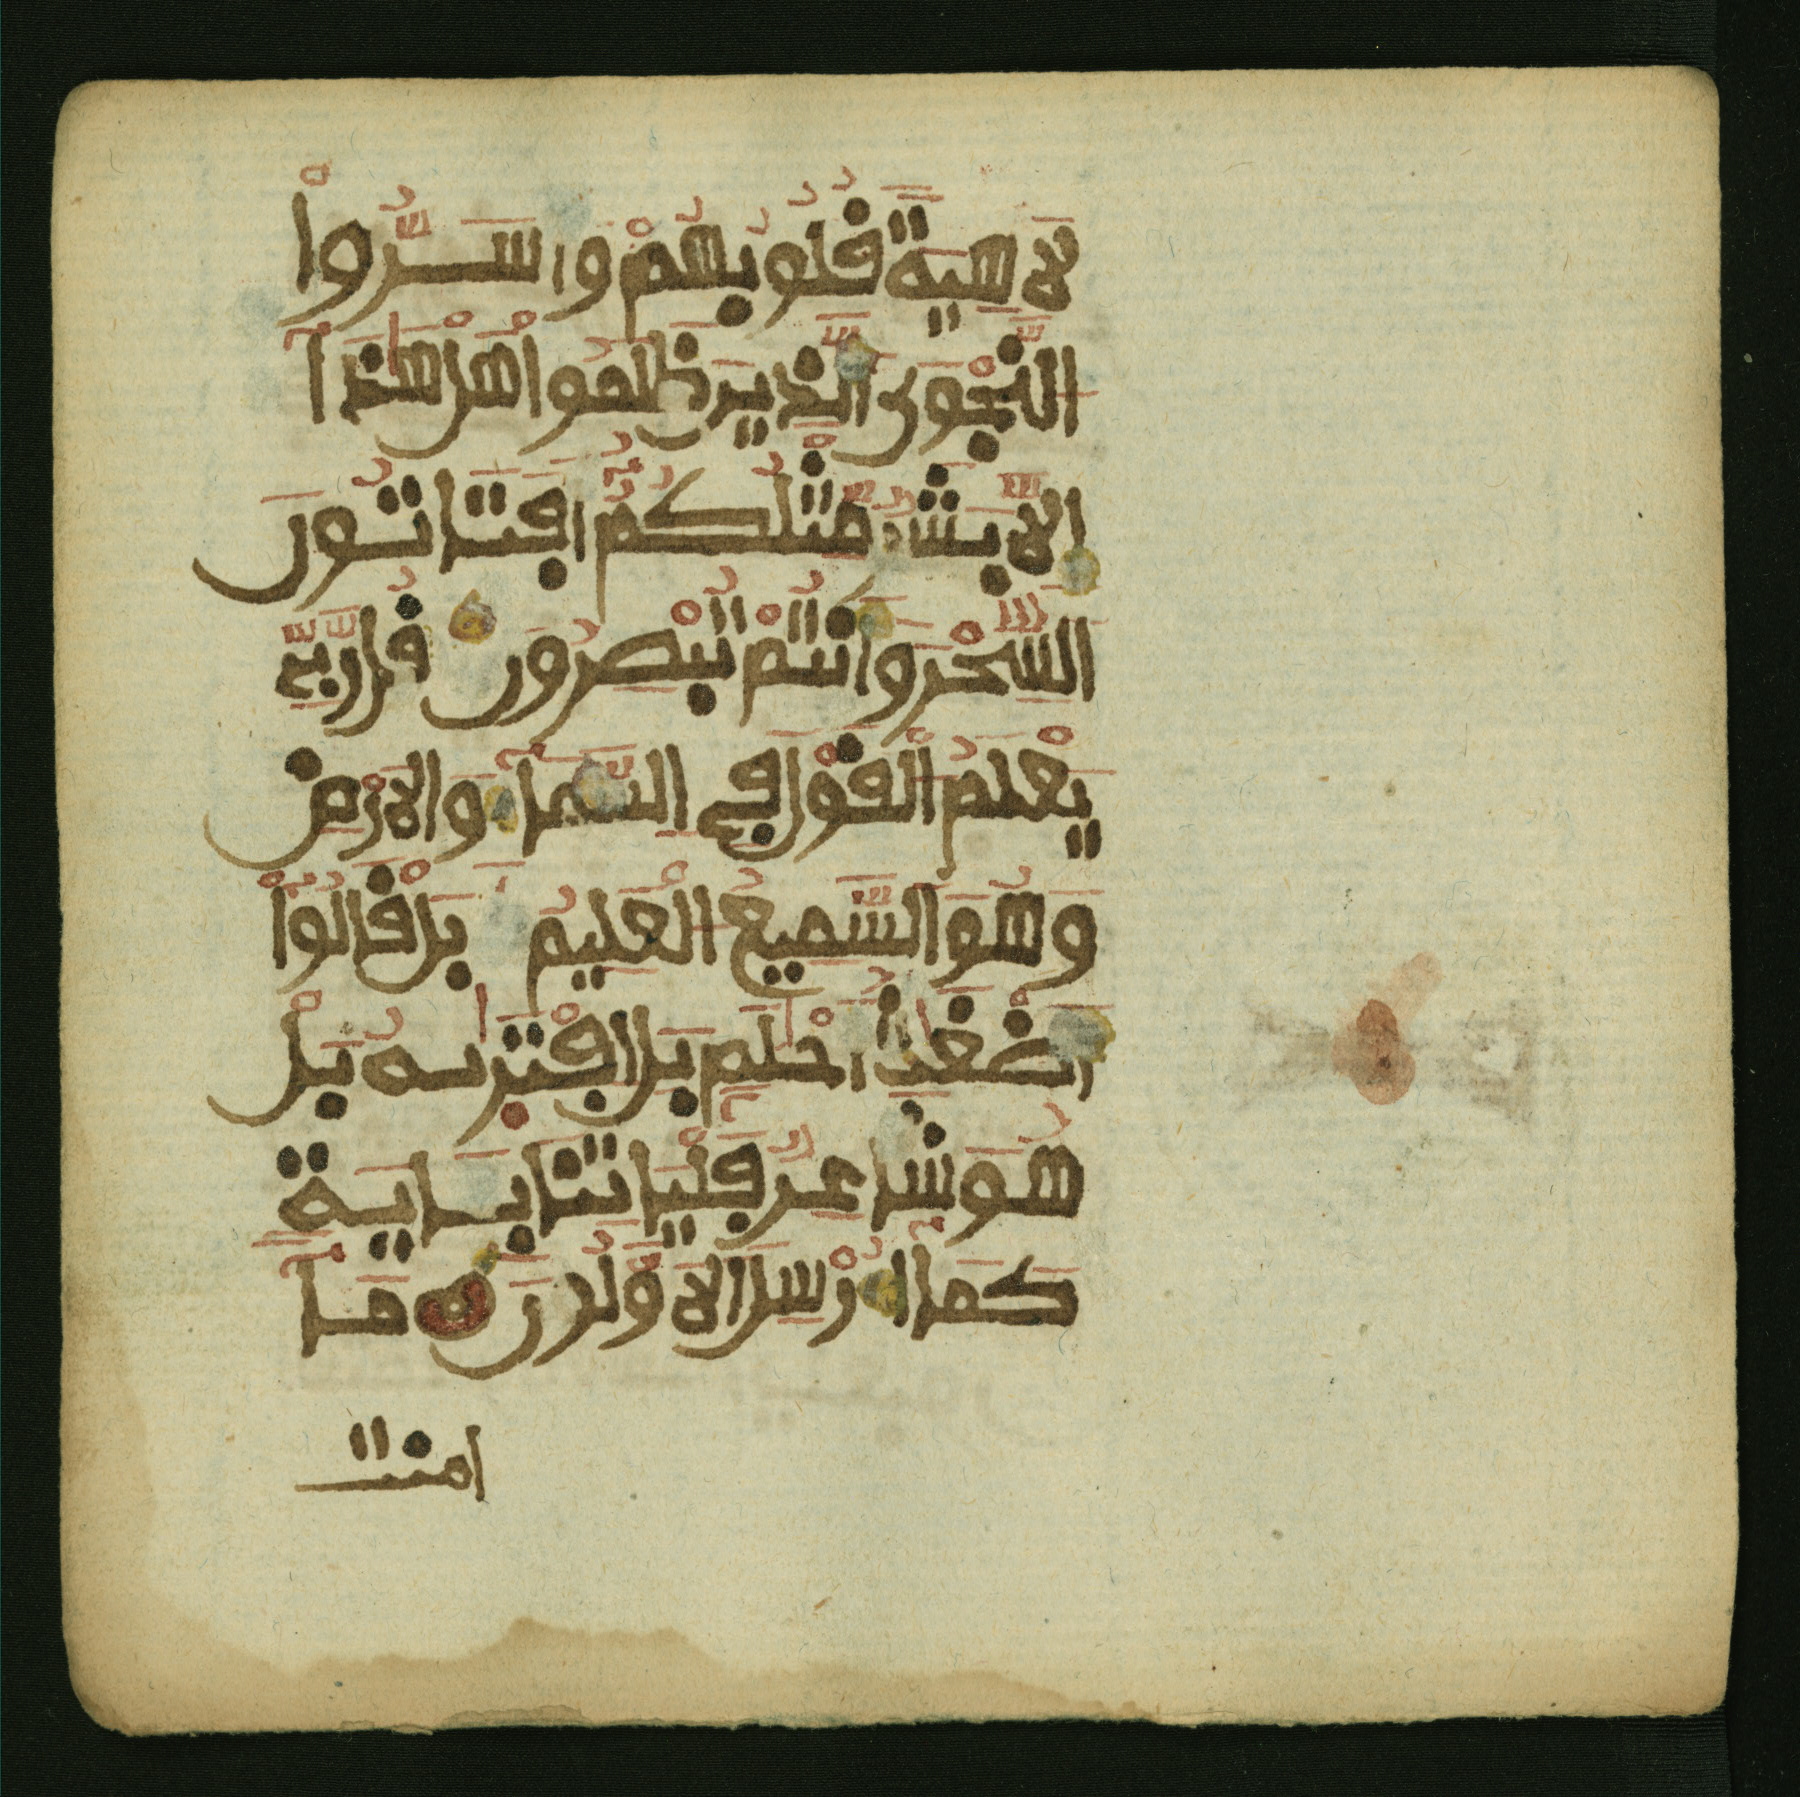 لَاهِيَةً قُلُوبُهُمْ وَأَسَرُّواْ
النَّجْوَى الَّذِينَ ظَلَمُواْ هَلْ هَذَا
إِلَّا بَشَرٌ مِّثْلُكُمُ أَفَتَاتُونَ
السِّحْرَ وَأَنتُمْ تُبْصِرُونَ قُل رَّبِّي
يَعْلَمُ الْقَوْلَ فِي السَّمَآءِ وَالَارْضِ
وَهُوَ السَّمِيعُ الْعَلِيمُ بَلْ قَالُواْ
أَضْغَثُ أَحْلَمٍ بَلِ افْتَرَىهُ بَلْ
هُوَ شَاعِرٌ فَلْيَاتِنَا بِـَٔايَةٍ
كَمَآ أُرْسِلَ الَاوَّلُونَ مَآ
امنت